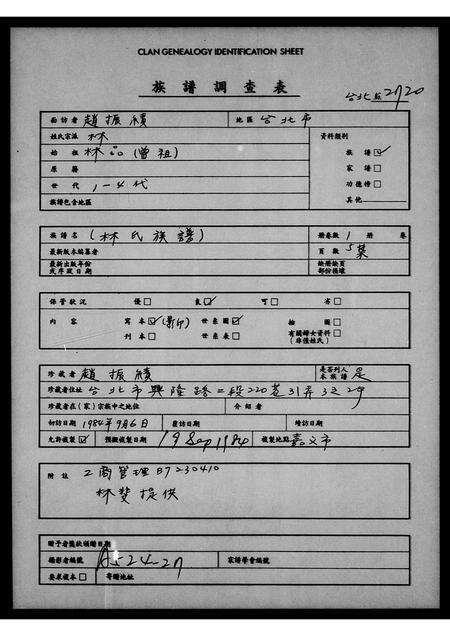 CLAN GENEALOGY IDENTIFICATION SHEET
族譜調查表
台北縣2720
面訪者 趙振績 地區 台北市
姓氏宗派 林 資料類別
始祖 林 (曾祖) 族譜☑
原籍 家譜□
世代 1-4代 功德榜□
族譜包含地區 其他
族譜名 (林氏族譜) 冊卷數 1 冊 卷
最新版本編纂者 頁數 5葉
最新出版年份
或序跋日期
保管狀況 優□ 良☑ 可□ 劣□
內容 寫本☑(影印) 世系圖☑ 繪圖□
刊本□ 世系表□ 有關婦女資料□
(非僅姓氏)
珍藏者 趙振績 是否列入
本族譜 是
珍藏者住址 台北市興隆路二段220巷31弄3之2号
珍藏者在(家)宗族中之地位 介紹者
初訪日期 1984年9月6日 覆訪日期 續訪日期
允許複製☑ 預擬複製日期 19 Sep 1984 複製地點 嘉义市
附註 工商管理 B7230410
林斐提供
贈予者獎狀頒贈日期
攝影者編號 A-524-27 家譜學會編號
要求複本□ 寄贈地址